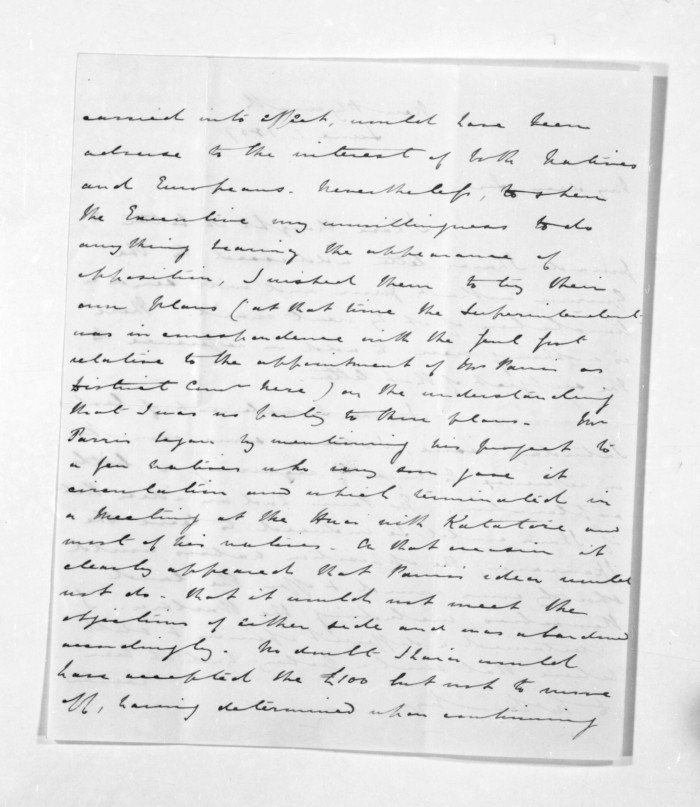 carried into effect, would have been
adverse to the interest of both Natives
and Europeans. Nevertheless, to shew
the Executive my unwillingness to do
anything bearing the appearance of
opposition, I wished them to try their
own plans (at that time the Superintendent
was in correspondence with the Genl Govt
relative to the appointment of Mr Parris as
District Comr here) on the understanding
that I was no party to those plans. Mr
Parris began by mentioning his project to
a few natives who very soon gave it
circulation and which terminated in
a Meeting at the Huas with Katatore and
most of his natives. On that occasion it
clearly appeared that Parris idea would
not do - that it would not meet the
objections of either side and was abandoned
accordingly. No doubt Ihaia would
have accepted the £100 but not to move
off, having determined upon continuing